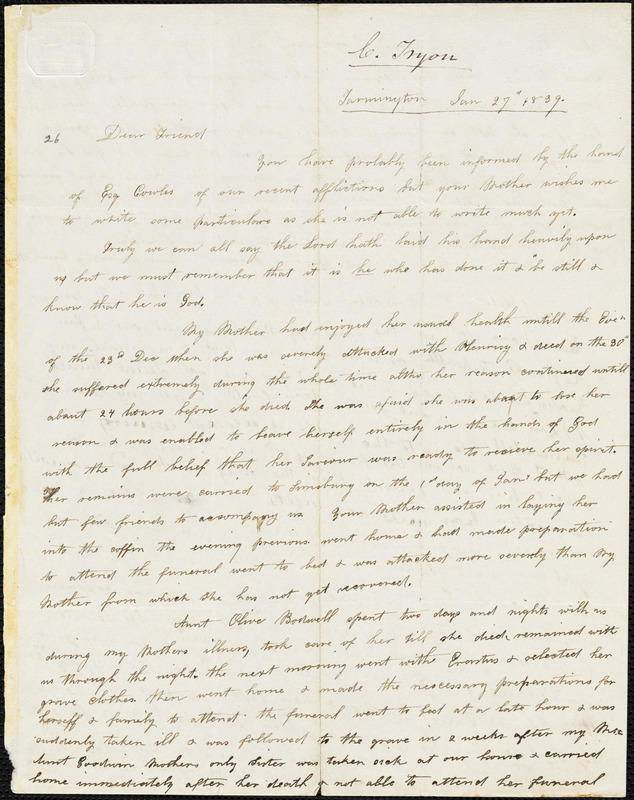 C. Tryon
Farmington Jan 27th 1839.
26 Dear Friend
You have probably been informed by the hand
of Esq Cowles of our recent afflictions but your Mother wishes me
to write some particulars as she is not able to write much yet.
Truly we can all say the Lord hath laid his hand heavily upon
us but we must remember that it is he who has done it & "be still &
know that he is God.
My Mother had enjoyed her usual health untill the Eve'n
of the 23d Dec when she was severely attacked with Pleurisy & died on the 30th
she suffered extremely during the whole time altho her reason continued untill
about 24 hours before she died She was afraid she was about to lose her
reason & was enabled to leave herself entirely in the hands of God
with the full belief that her Saviour was ready to recieve her spirit.
Her remains were carried to Simsbury on the 1st day of Jany but we had
but few friends to accompany us Your Mother assisted in laying her
into the coffin the evening previous went home & had made preparation
to attend the funeral went to bed & was attacked more severly than my
Mother from which she has not yet recovered.
Aunt Olive Bodwell spent two days and nights with us
during my Mothers illness, took care of her till she died, remained with
us through the night. the next morning went with Erastus & selected her
grave clothes then went home & made the necessary preparations for
herself & family to attend the funeral went to bed at a late hour & was
suddenly taken ill & was followed to the grave in 2 weeks after my Mother
Aunt Goodwin Mothers only sister was taken sick at our house & carried
home immediately after her death & not able to attend her funeral